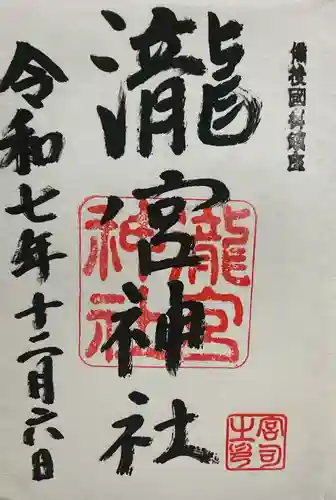 備後國鎮座
瀧宮神社
令和七年十二月六日
瀧宮
神社
宮司
之印